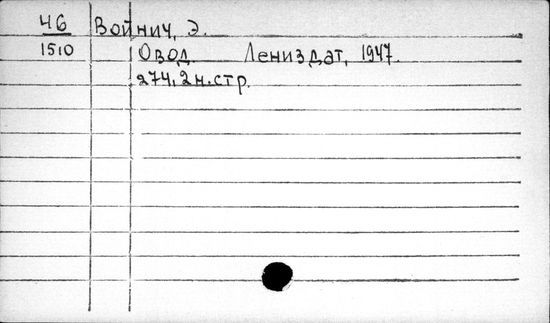 46 Войнич, Э.
1510 Овод. Лениздат, 1947.
274, 2 н. стр.